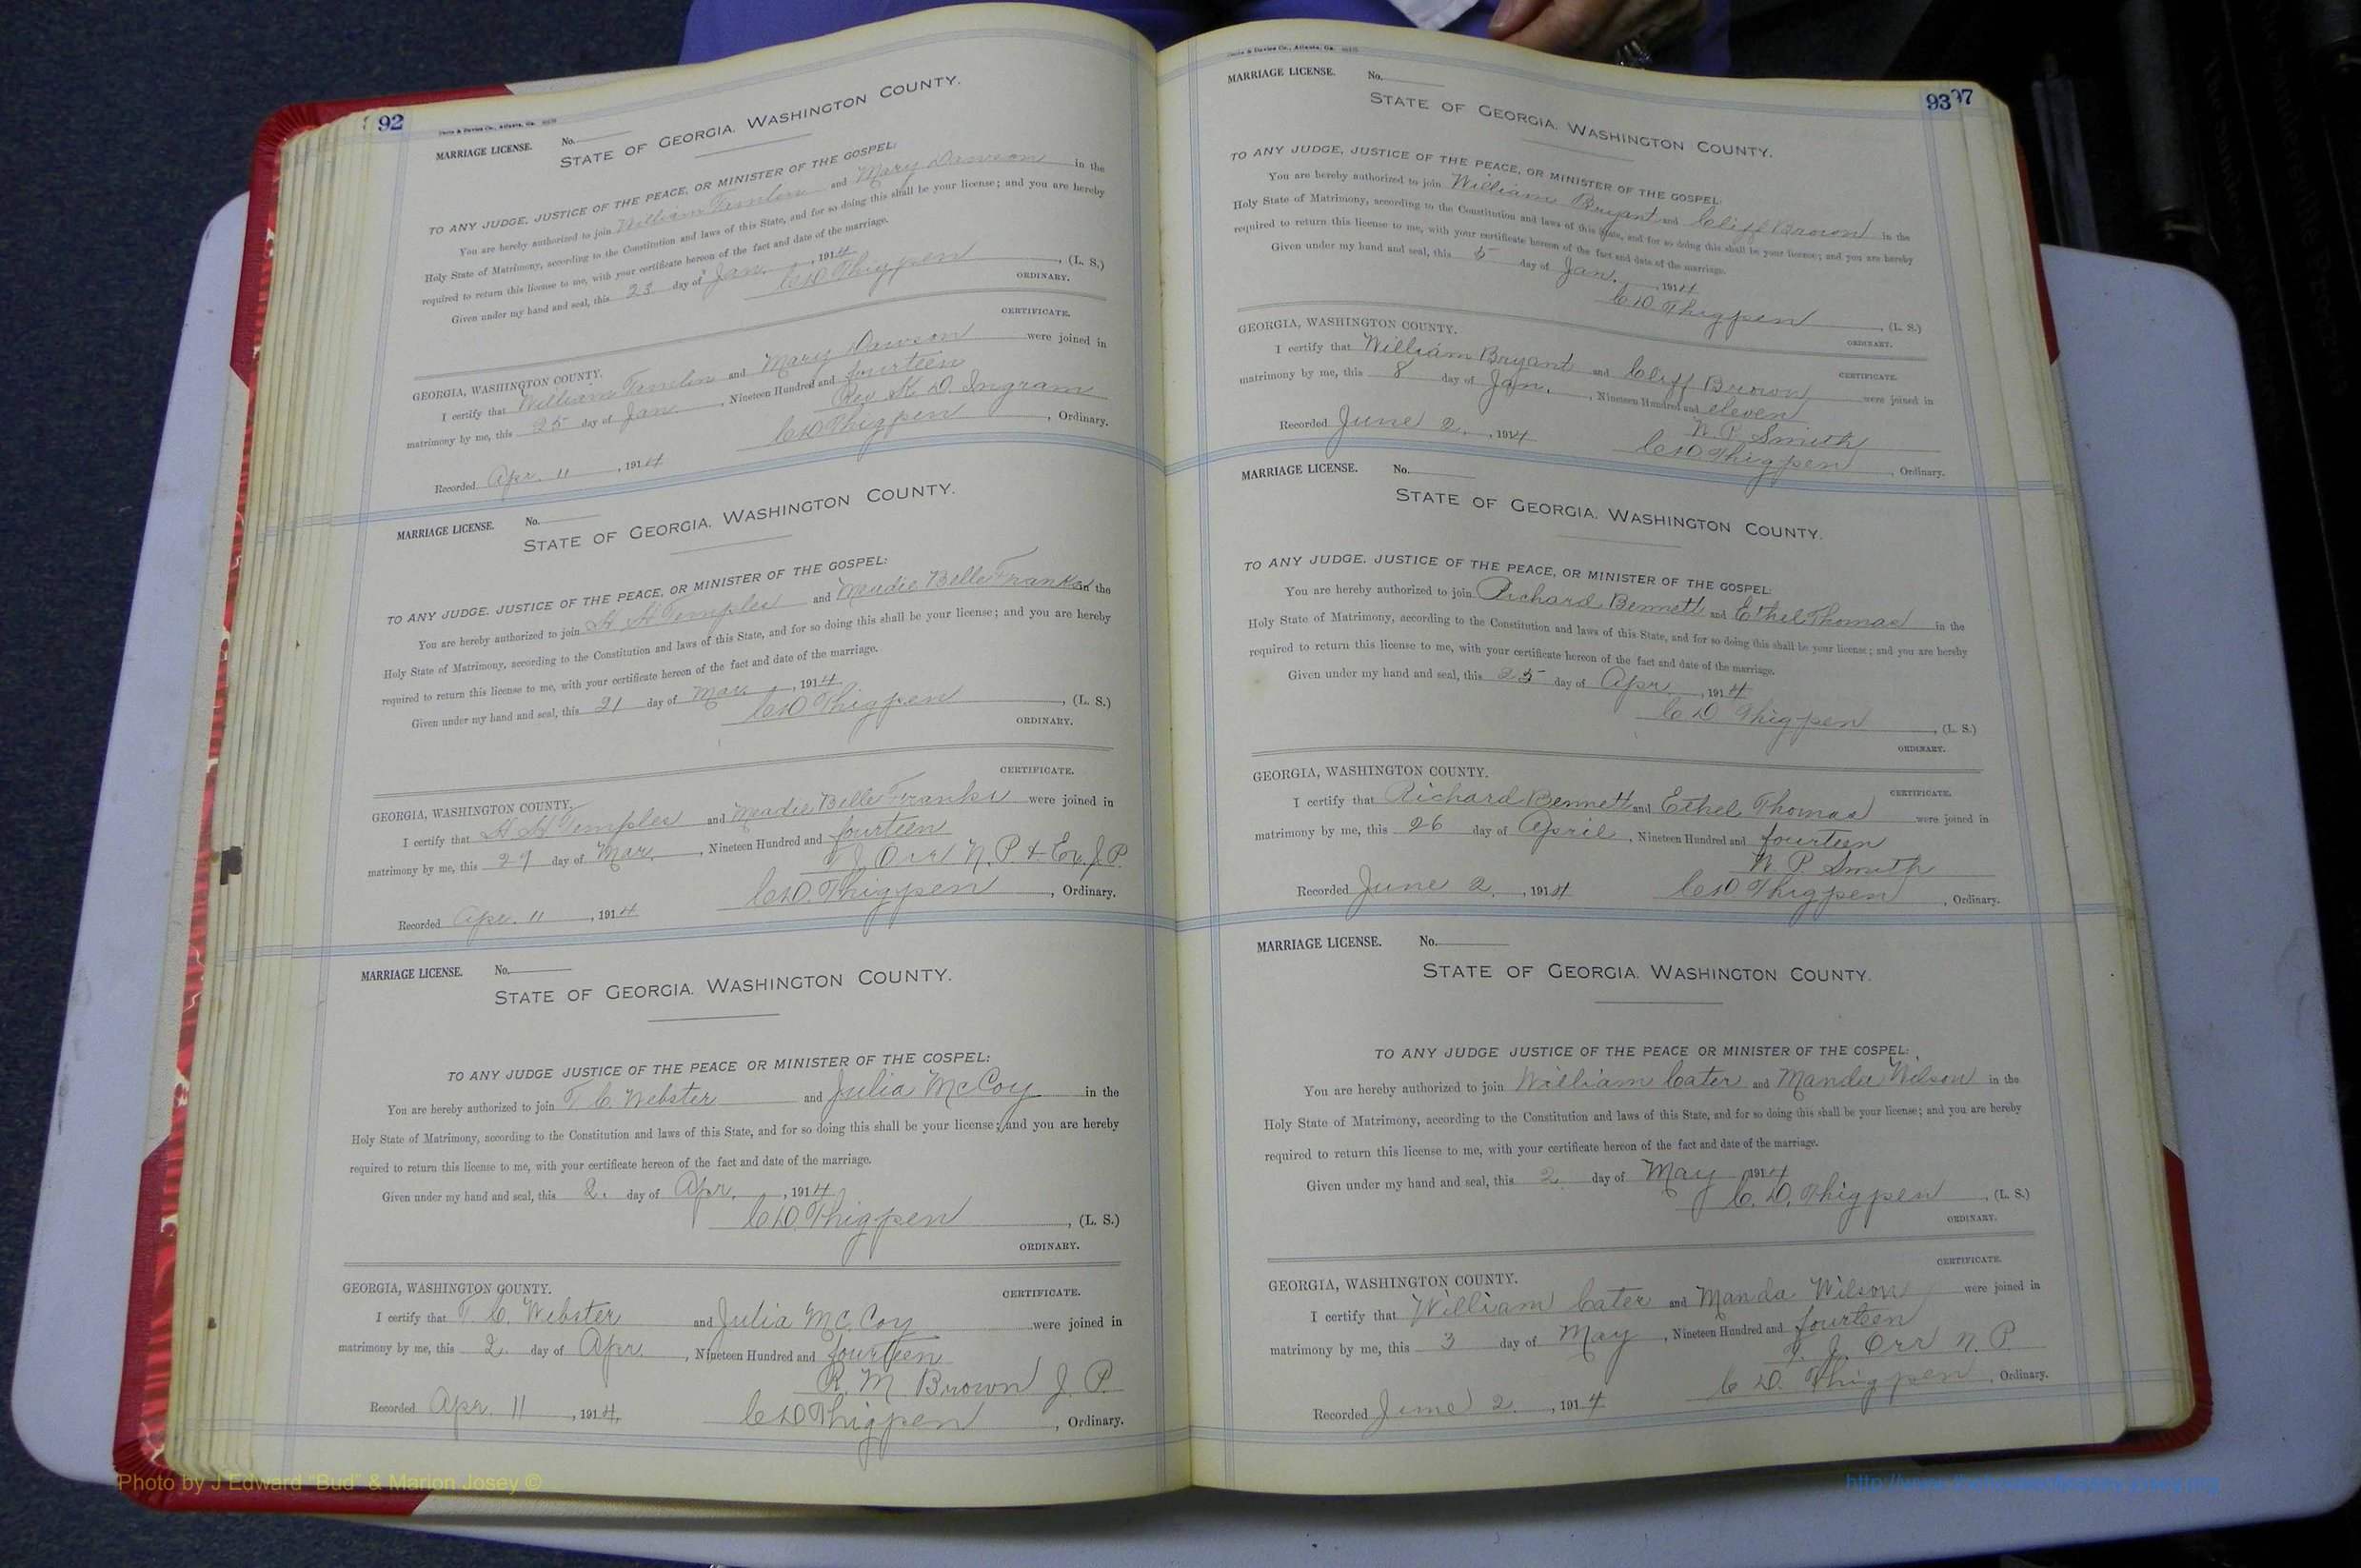 92
MARRIAGE LICENSE. No.
STATE OF GEORGIA, WASHINGTON COUNTY.
TO ANY JUDGE, JUSTICE OF THE PEACE, OR MINISTER OF THE GOSPEL:
You are hereby authorized to join William Tomlin and Mary Dawson in the
Holy State of Matrimony, according to the Constitution and laws of this State, and for so doing this shall be your license; and you are hereby
required to return this license to me, with your certificate hereon of the fact and date of the marriage.
Given under my hand and seal, this 23 day of Jan. , 1914
C. D. Thigpen , (L. S.)
ORDINARY.
CERTIFICATE.
GEORGIA, WASHINGTON COUNTY.
I certify that William Tomlin and Mary Dawson were joined in
matrimony by me, this 25 day of Jan. , Nineteen Hundred and fourteen
Rev K. D. Ingram
Recorded Apr. 11 , 1914 C D Thigpen , Ordinary.
MARRIAGE LICENSE. No.
STATE OF GEORGIA, WASHINGTON COUNTY.
TO ANY JUDGE, JUSTICE OF THE PEACE, OR MINISTER OF THE GOSPEL:
You are hereby authorized to join H H Temples and Meadie Belle Franks in the
Holy State of Matrimony, according to the Constitution and laws of this State, and for so doing this shall be your license; and you are hereby
required to return this license to me, with your certificate hereon of the fact and date of the marriage.
Given under my hand and seal, this 21 day of Mar. , 1914
C D Thigpen , (L. S.)
ORDINARY.
CERTIFICATE.
GEORGIA, WASHINGTON COUNTY.
I certify that H H Temples and Meadie Belle Franks were joined in
matrimony by me, this 29 day of Mar. , Nineteen Hundred and fourteen
J Orr N. P. & Ex. J. P.
Recorded Apr. 11 , 1914 C D. Thigpen , Ordinary.
MARRIAGE LICENSE. No.
STATE OF GEORGIA, WASHINGTON COUNTY.
TO ANY JUDGE JUSTICE OF THE PEACE OR MINISTER OF THE GOSPEL:
You are hereby authorized to join T C. Webster and Julia McCoy in the
Holy State of Matrimony, according to the Constitution and laws of this State, and for so doing this shall be your license; and you are hereby
required to return this license to me, with your certificate hereon of the fact and date of the marriage.
Given under my hand and seal, this 2. day of Apr. , 1914
C D. Thigpen , (L. S.)
ORDINARY.
CERTIFICATE.
GEORGIA, WASHINGTON COUNTY.
I certify that T. C. Webster and Julia McCoy were joined in
matrimony by me, this 2. day of Apr. , Nineteen Hundred and fourteen
R. M. Brown J. P.
Recorded Apr. 11 , 1914. C D Thigpen , Ordinary.
93 97
MARRIAGE LICENSE. No.
STATE OF GEORGIA, WASHINGTON COUNTY.
TO ANY JUDGE, JUSTICE OF THE PEACE, OR MINISTER OF THE GOSPEL:
You are hereby authorized to join William Bryant and Cliff Brown in the
Holy State of Matrimony, according to the Constitution and laws of this State, and for so doing this shall be your license; and you are hereby
required to return this license to me, with your certificate hereon of the fact and date of the marriage.
Given under my hand and seal, this 5 day of Jan. , 1914
C. D. Thigpen , (L. S.)
ORDINARY.
GEORGIA, WASHINGTON COUNTY.
CERTIFICATE.
I certify that William Bryant and Cliff Brown were joined in
matrimony by me, this 8 day of Jan. , Nineteen Hundred and eleven
W. P. Smith
Recorded June 2. , 1914 C D Thigpen , Ordinary.
MARRIAGE LICENSE. No.
STATE OF GEORGIA, WASHINGTON COUNTY.
TO ANY JUDGE, JUSTICE OF THE PEACE, OR MINISTER OF THE GOSPEL:
You are hereby authorized to join Richard Bennett and Ethel Thomas in the
Holy State of Matrimony, according to the Constitution and laws of this State, and for so doing this shall be your license; and you are hereby
required to return this license to me, with your certificate hereon of the fact and date of the marriage.
Given under my hand and seal, this 25 day of Apr. , 1914
C D. Thigpen , (L. S.)
ORDINARY.
GEORGIA, WASHINGTON COUNTY.
CERTIFICATE.
I certify that Richard Bennett and Ethel Thomas were joined in
matrimony by me, this 26 day of April , Nineteen Hundred and fourteen
W. P. Smith
Recorded June 2. , 1914 C D Thigpen , Ordinary.
MARRIAGE LICENSE. No.
STATE OF GEORGIA, WASHINGTON COUNTY.
TO ANY JUDGE JUSTICE OF THE PEACE OR MINISTER OF THE GOSPEL:
You are hereby authorized to join William Cater and Manda Wilson in the
Holy State of Matrimony, according to the Constitution and laws of this State, and for so doing this shall be your license; and you are hereby
required to return this license to me, with your certificate hereon of the fact and date of the marriage.
Given under my hand and seal, this 2 day of May 1914
C. D. Thigpen , (L. S.)
ORDINARY.
CERTIFICATE.
GEORGIA, WASHINGTON COUNTY.
I certify that William Cater and Manda Wilson were joined in
matrimony by me, this 3 day of May , Nineteen Hundred and fourteen
T. J. Orr N. P
Recorded June 2. , 1914 C D. Thigpen , Ordinary.
Photo by J Edward "Bud" & Marion Josey ©